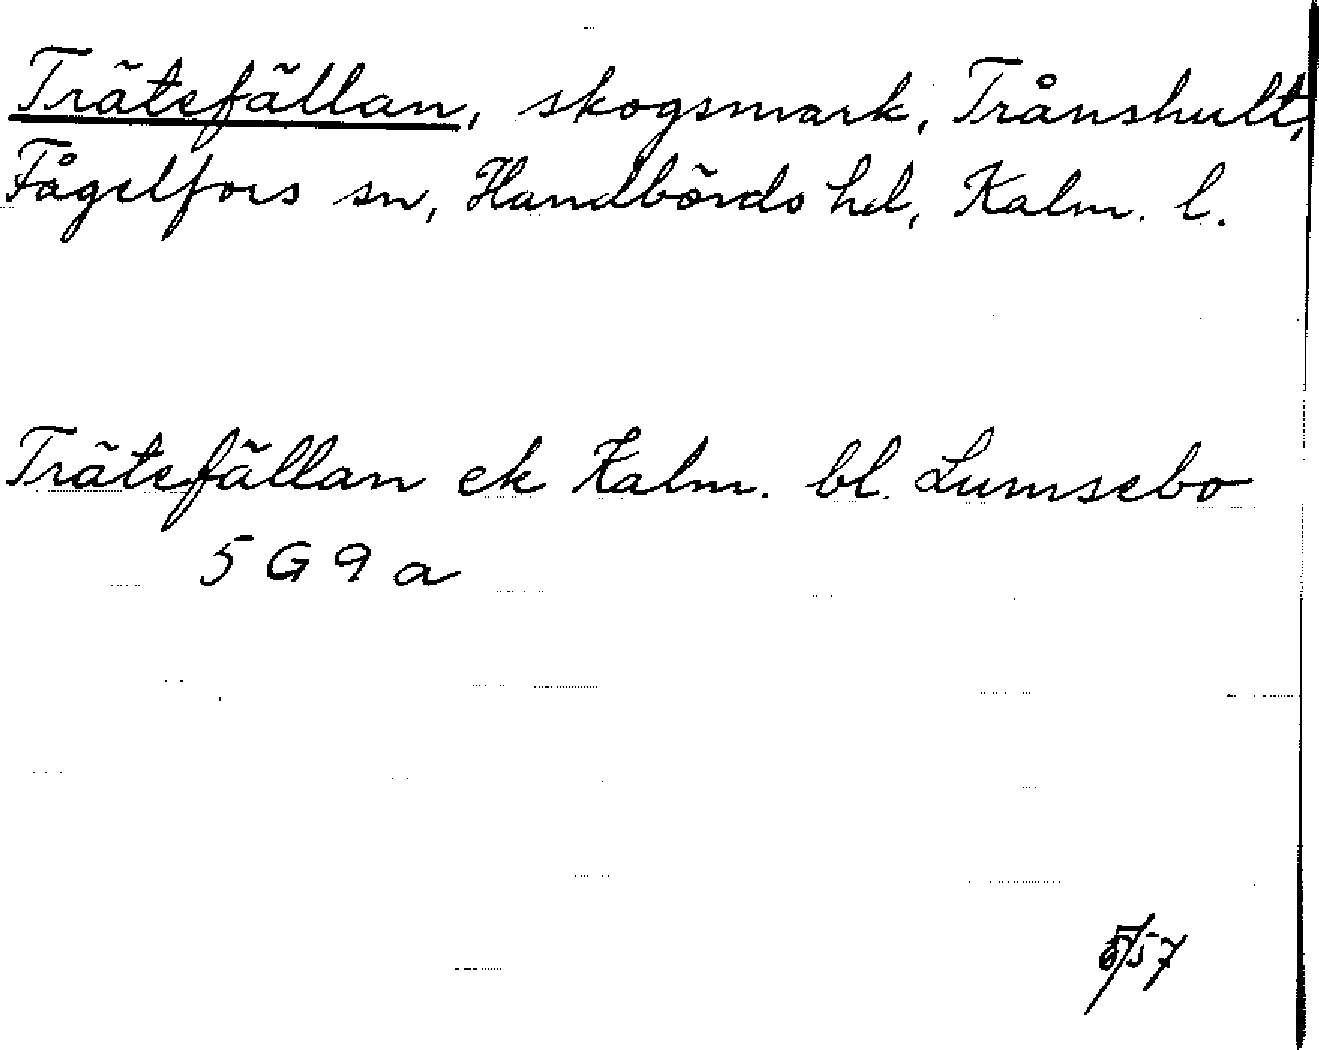 Trätefällan, skogsmark, Trånshult,
Fågelfors sn, Handbörds hd, Kalm. l.
Trätefällan ek Kalm. bl. Lumsebo
5 G 9 a